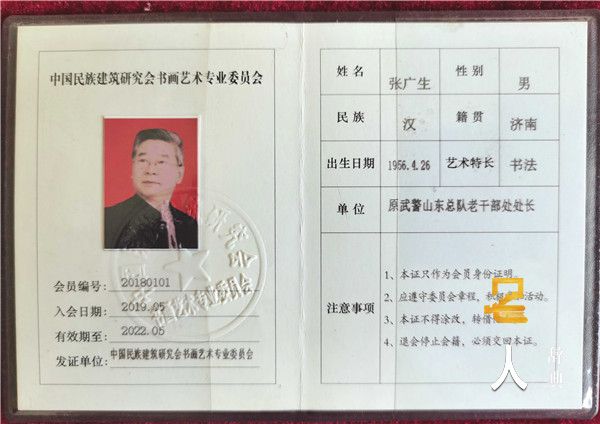 中国民族建筑研究会书画艺术专业委员会
会员编号：20180101
入会日期：2019.05
有效期至：2022.05
发证单位：中国民族建筑研究会书画艺术专业委员会
姓名 张广生 性别 男
民族 汉 籍贯 济南
出生日期 1956.4.26 艺术特长 书法
单位 原武警山东总队老干部处处长
注意事项
1、本证只作为会员身份证明。
2、应遵守委员会章程，积极 活动。
3、本证不得涂改、转借
4、退会停止会籍，必须交回本证。
人